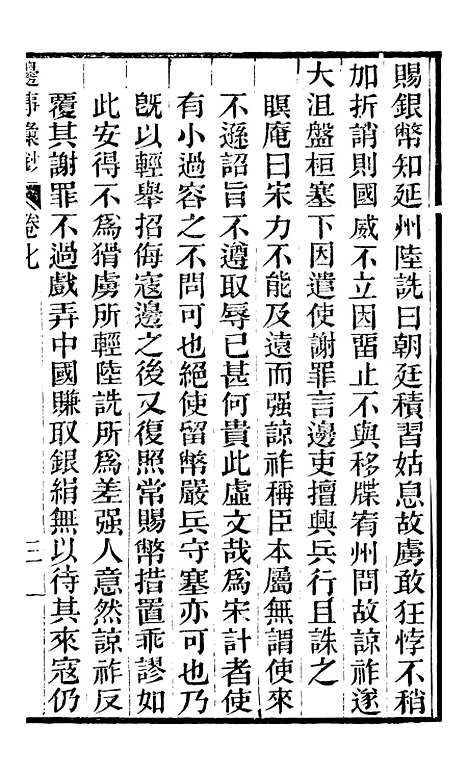 賜銀幣知延州陸詵曰朝廷積習姑息故虜敢狂悖不稍
加折誚則國威不立因畱止不與移牒宥州問故諒祚遂
大沮盤桓塞下因遣使謝罪言邊吏擅興兵行且誅之
瞑庵曰宋力不能及遠而强諒祚稱臣本屬無謂使來
不遜詔旨不遵取辱已甚何貴此虛文哉為宋計者使
有小過容之不問可也絕使留幣嚴兵守塞亦可也乃
旣以輕舉招侮寇邊之後又復照常賜幣措置乖謬如
此安得不為猾虜所輕陸詵所為差强人意然諒祚反
覆其謝罪不過戲弄中國賺取銀絹無以待其來寇仍
邊事彙鈔 卷七 三